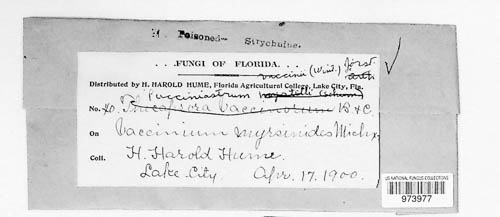 Poisoned— Strychnine.
FUNGI OF FLORIDA.
vaccinii (Wint.) Jörst.
Distributed by H. HAROLD HUME, Florida Agricultural College, Lake City, Fla.
Pucciniastrum myrtilli (Schum)
No. 40. Thecopsora Vacciniorum B & C.
On Vaccinium myrsinides Michx.
Coll. H. Harold Hume.
Lake City. Apr. 17. 1900.
US NATIONAL FUNGUS COLLECTIONS
973977